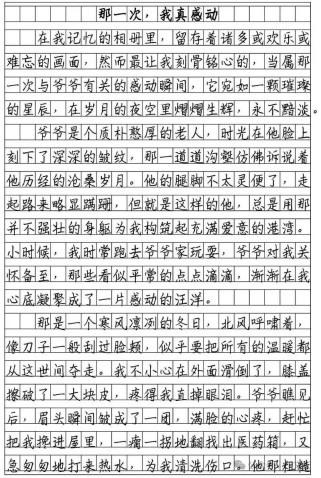 那一次，我真感动
在我记忆的相册里，留存着诸多或欢乐或
难忘的画面，然而最让我刻骨铭心的，当属那
一次与爷爷有关的感动瞬间，它宛如一颗璀璨
的星辰，在岁月的夜空里熠熠生辉，永不黯淡。
爷爷是个质朴憨厚的老人，时光在他脸上
刻下了深深的皱纹，那一道道沟壑仿佛诉说着
他历经的沧桑岁月。他的腿脚不太灵便了，走
起路来略显蹒跚，但就是这样的他，总是用那
并不强壮的身躯为我构筑起充满爱意的港湾。
小时候，我时常跑去爷爷家玩耍，爷爷对我关
怀备至，那些看似平常的点点滴滴，渐渐在我
心底凝聚成了一片感动的汪洋。
那是一个寒风凛冽的冬日，北风呼啸着，
像刀子一般刮过脸颊，似乎要把所有的温暖都
从这世间夺走。我不小心在外面滑倒了，膝盖
擦破了一大块皮，疼得我直掉眼泪。爷爷瞧见
后，眉头瞬间皱成了一团，满脸的心疼，赶忙
把我搀进屋里，一瘸一拐地翻找出医药箱，又
急匆匆地打来热水，为我清洗伤口。他那粗糙